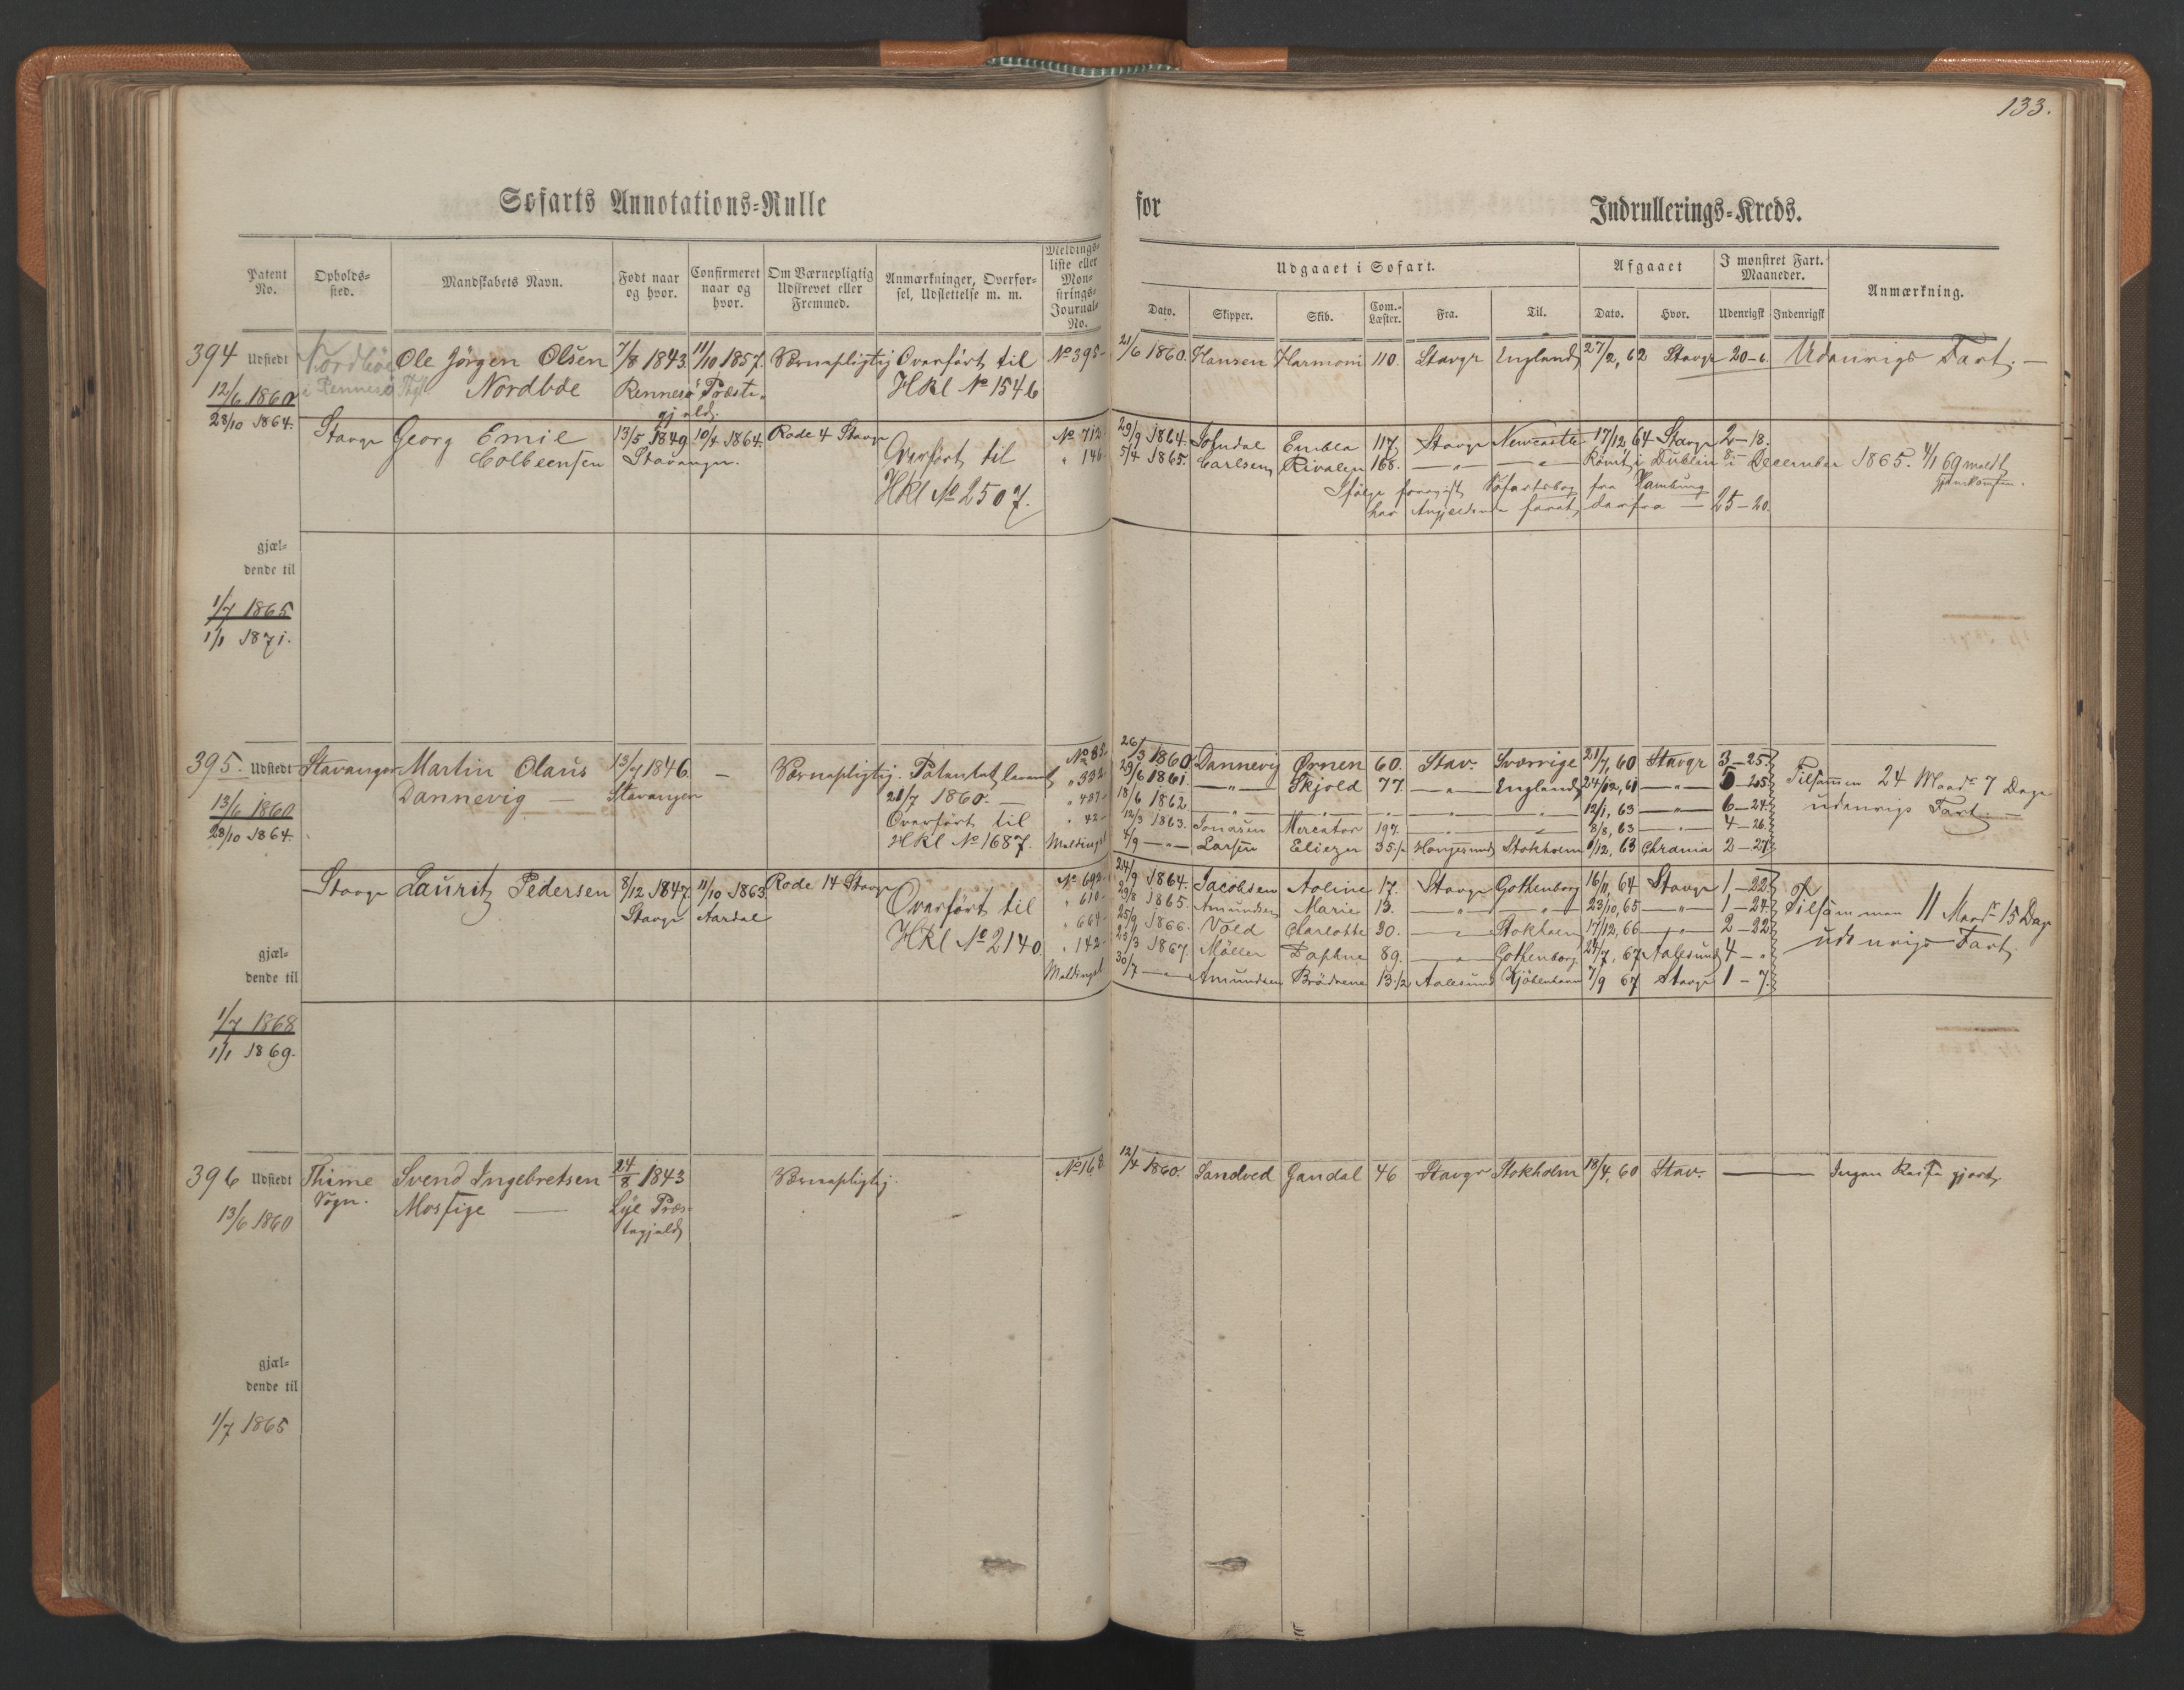 133.
Søfarts Annotations-Rulle for Indrullerings-Kreds.
Patent No.
Opholds-sted.
Mandskabets Navn.
Født naar og hvor.
Confirmeret naar og hvor.
Om Værnepligtig Udskrevet eller Fremmed.
Anmærkninger, Overførsel, Udslettelse m. m.
Meldings-liste eller Mønstrings-Journal-No.
Udgaaet i Søfart.
Dato. Skipper. Skib. Com.-Læster. Fra. Til.
Afgaaet
Dato. Hvor.
I mønstret Fart. Maaneder.
Udenrigsk Indenrigsk
Anmærkning.
394 Udstedt Nordbøe Ole Jörgen Olsen 7/8 1843. 11/10 1857. Værnepligtig Overført til No 395 21/6 1860. Hansen Harmoni 110. Stavgr England 27/2, 62 Stavgr 20-6. Udenrigs Fart. —
12/6 1860 i Rennesø Nordböe Rennesø Præste- HKl No 1546
gjeld.
28/10 1864. Stavgr Georg Emil 13/5 1849 10/4 1864. Rode 4 Stavgr Overført til No 712 29/9 1864. Embla 117 Stavgr Newcastle 17/12 64 Stavgr 2-18.
Colbeensen Stavanger. HKl No 2507. " 146 5/4 1865. Carlsen Rivalen 168. — " — — " — Rømt i Dublin i December 1865. 4/1 69 meldt
Ifølge Søfartsbog fra Hamburg
har Angjeldende faret derfra — 25-20.
gjæl-
dende til
1/7 1865
1/1 1871.
395. Udstedt Stavanger Martin Olaus 13/7 1846. — Værnepligtig. Patentet leveret No 85 26/3 1860 Dannevig Ørnen 60. Stav. Sverrige 21/7, 60 Stavgr 3-25.
13/6 1860 Dannevig — Stavanger 21/7 1860. — " 332 29/6 1861. — " — Skjold 77. — " — England 24/12, 61 — " — 5-25 Tilsammen 24 Maad. 7 Dage
28/10 1864. Overført til " 437 18/6 1862. — " — — " — — " — — " — 12/1, 63 — " — 6-24. udenrigs Fart. —
HKl No 1687. " 42 12/3 1863. Jonasen Mercator 197. — " — — " — 8/8, 63 — " — 4-26.
Meldingsl 4/9 — " — Larsen Eliezer 35 1/2 Haugesund Stokholm 1/12, 63 Chrania 2-27
Stavgr Lauritz Pedersen 8/12 1847. 11/10 1863 Rode 14 Stavgr Overført til No 692 24/9 1864. Jacobsen Aoline 17. Stavgr Gothenborg 16/11, 64 Stavgr 1-22.
Stavgr Aardal HKl No 2140. " 610 29/8 1865. Amundsen Marie 13. — " — — " — 23/10, 65 — " — 1-24. Tilsammen 11 Maad. 15 Dage
" 664 25/9 1866. Vold Charlotte 30. — " — Stokholm 17/12, 66 — " — 2-22 udenrigs Fart.
" 142 25/3 1867. Møller Daphne 89. — " — Gothenborg 24/7, 67 Aalesund 4 - "
Meldingsl 30/7 — " — Amundsen Brødrene 13 1/2 Aalesund Kjøbenhavn 7/9 67 Stavgr 1-7.
gjæl-
dende til
1/7 1868
1/1 1869.
396 Udstedt Thime Svend Ingebretsen 24/8 1843 Værnepligtig. No 168 12/4 1860. Sandved Gandal 46 Stavgr Stokholm 18/4, 60 Stav. — Ingen Reise gjort.
13/6 1860 Sogn. Mosfige — Lye Præs-
tegjeld
gjæl-
dende til
1/7 1865